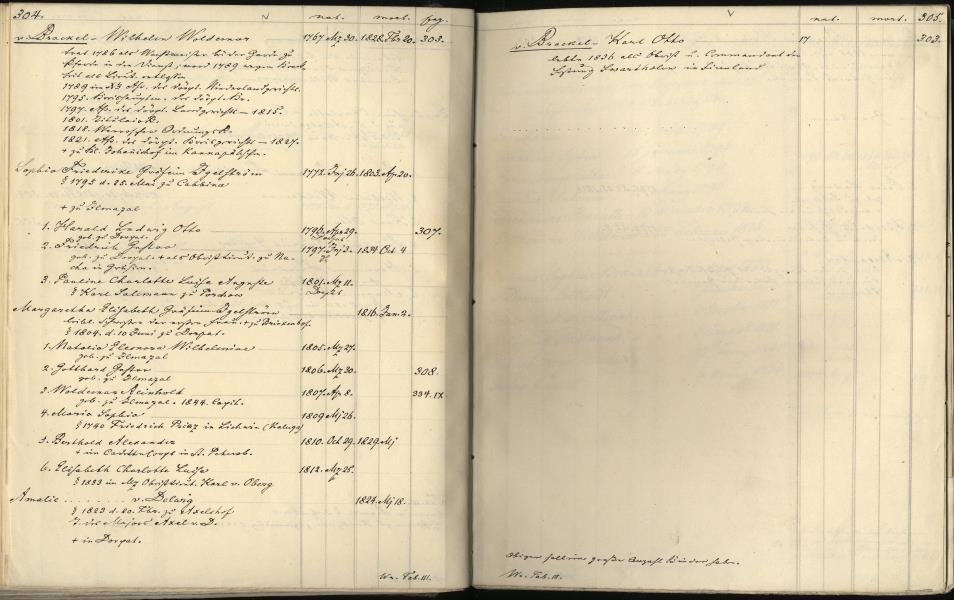 304. nat. mort. pag.
v. Brackel - Wilhelm Woldemar 1767. Mz 30. 1828. Fbr 20. 303.
trat 1786 als Wachtmeister bei der Garde zu
Pferde in den Dienst; ward 1789 wegen
heit als Lieut. entlassen
1789 in Ass. des Dörpt. Niederlandgerichts.
1795. des Dörpt. Kr.
1797. Ass. des Dörpt. Landgerichts - 1815.
1801. TitulairR.
1818. Werroscher OrdnungsR.
1821. Ass. des Dörpt. Kreisgerichts - 1827.
+ zu Kl. Johannishof im Kannapähschen.
Sophia Friederike Gräfin Igelström 1772. Juj 26. 1803. Apr. 20.
§ 1795 d. 25. Mai zu Cabbina
+ zu Ilmazal
1. Harald Ludwig Otto 1796. Apr 29. 307.
geb. zu Dorpat. Dorpat
2. Friedrich Gustav 1797. 3. 1834. Oct 4
geb. zu Dorpat. + als Obristlieut. zu Na-
cha in Grusien.
3. Pauline Charlotte Luise Auguste 1801. Mz 11.
§ Karl Salemann zu Porchow Dorpat
Margaretha Elisabeth Gräfin Igelström 1816. Jan. 2.
leibl. Schwester der ersten Frau. + zu Brinkenhof.
§ 1804. d. 10 Juni zu Dorpat.
1. Natalia Eleonora Wilhelmine 1805. Mz 27.
geb. zu Ilmazal
2. Gotthard Gustav 1806. Mz 30. 308.
geb. zu Ilmazal
3. Woldemar Reinhold 1807. Ap 8. 334. IX.
geb. zu Ilmazal. 1844. Capit.
4. Maria Sophia 1809 Mj 26.
§ 1740 Friedrich in Lichwin (Kaluga)
5. Berthold Alexander 1810. Oct 29. 1829. Mj
+ im Cadettencorps in St. Petersb.
6. Elisabeth Charlotte Luise 1812. Mz 25.
§ 1833 in Mz Obristlieut. Karl v. Oberg
Amalie . . . . . . . . v. Delwig 1824. Mj 18.
§ 1823 d. 20. Fbr. zu Axelshof
T. des Majors Axel v. D.
+ in Dorpat.
Wa. Tab. III.
nat. mort. 305.
v. Brackel - Karl Otto 17 303.
lebte 1836 als Obrist u. Commandant der
Festung Swartholm in Finnland
Obiger soll eine große Anzahl Kinder haben.
Wa. Tab. III.